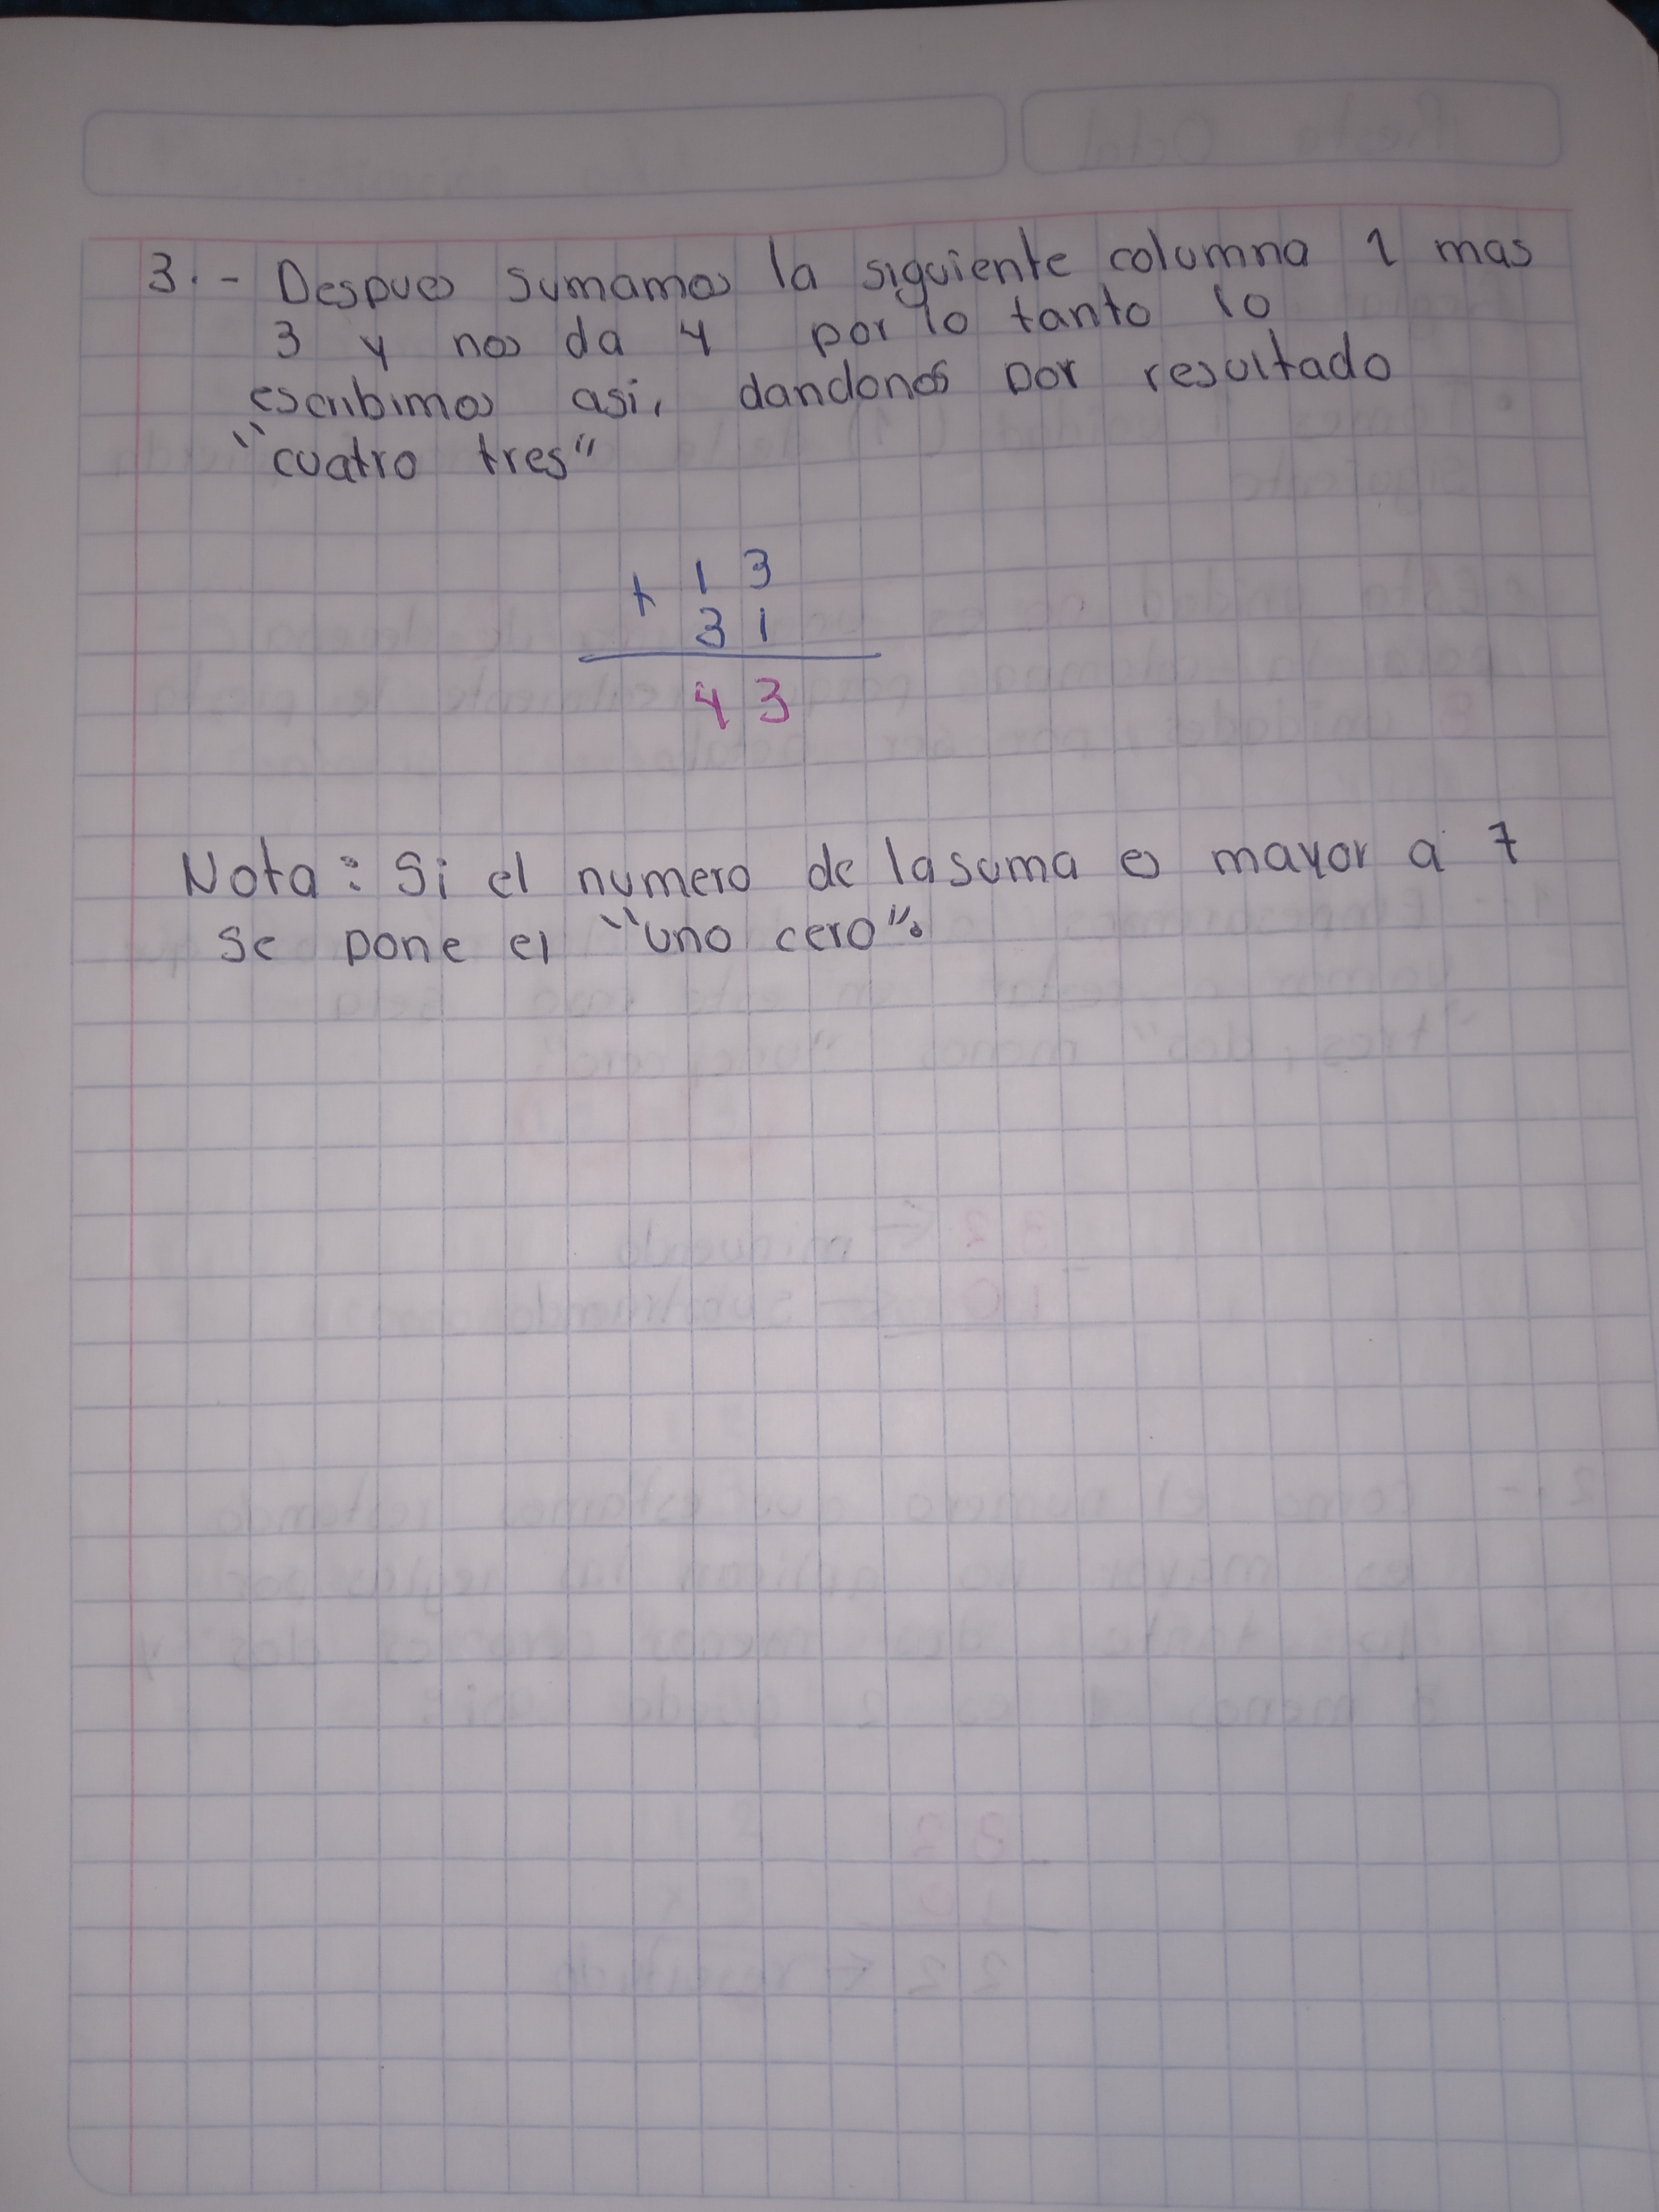 3.- Despues sumamos la siguiente columna 1 mas
3 y nos da 4 por lo tanto lo
escribimos asi, dandonos por resultado
"cuatro tres"
+ 1 3
3 1
4 3
Nota: Si el numero de la suma es mayor a 7
se pone el "uno cero".